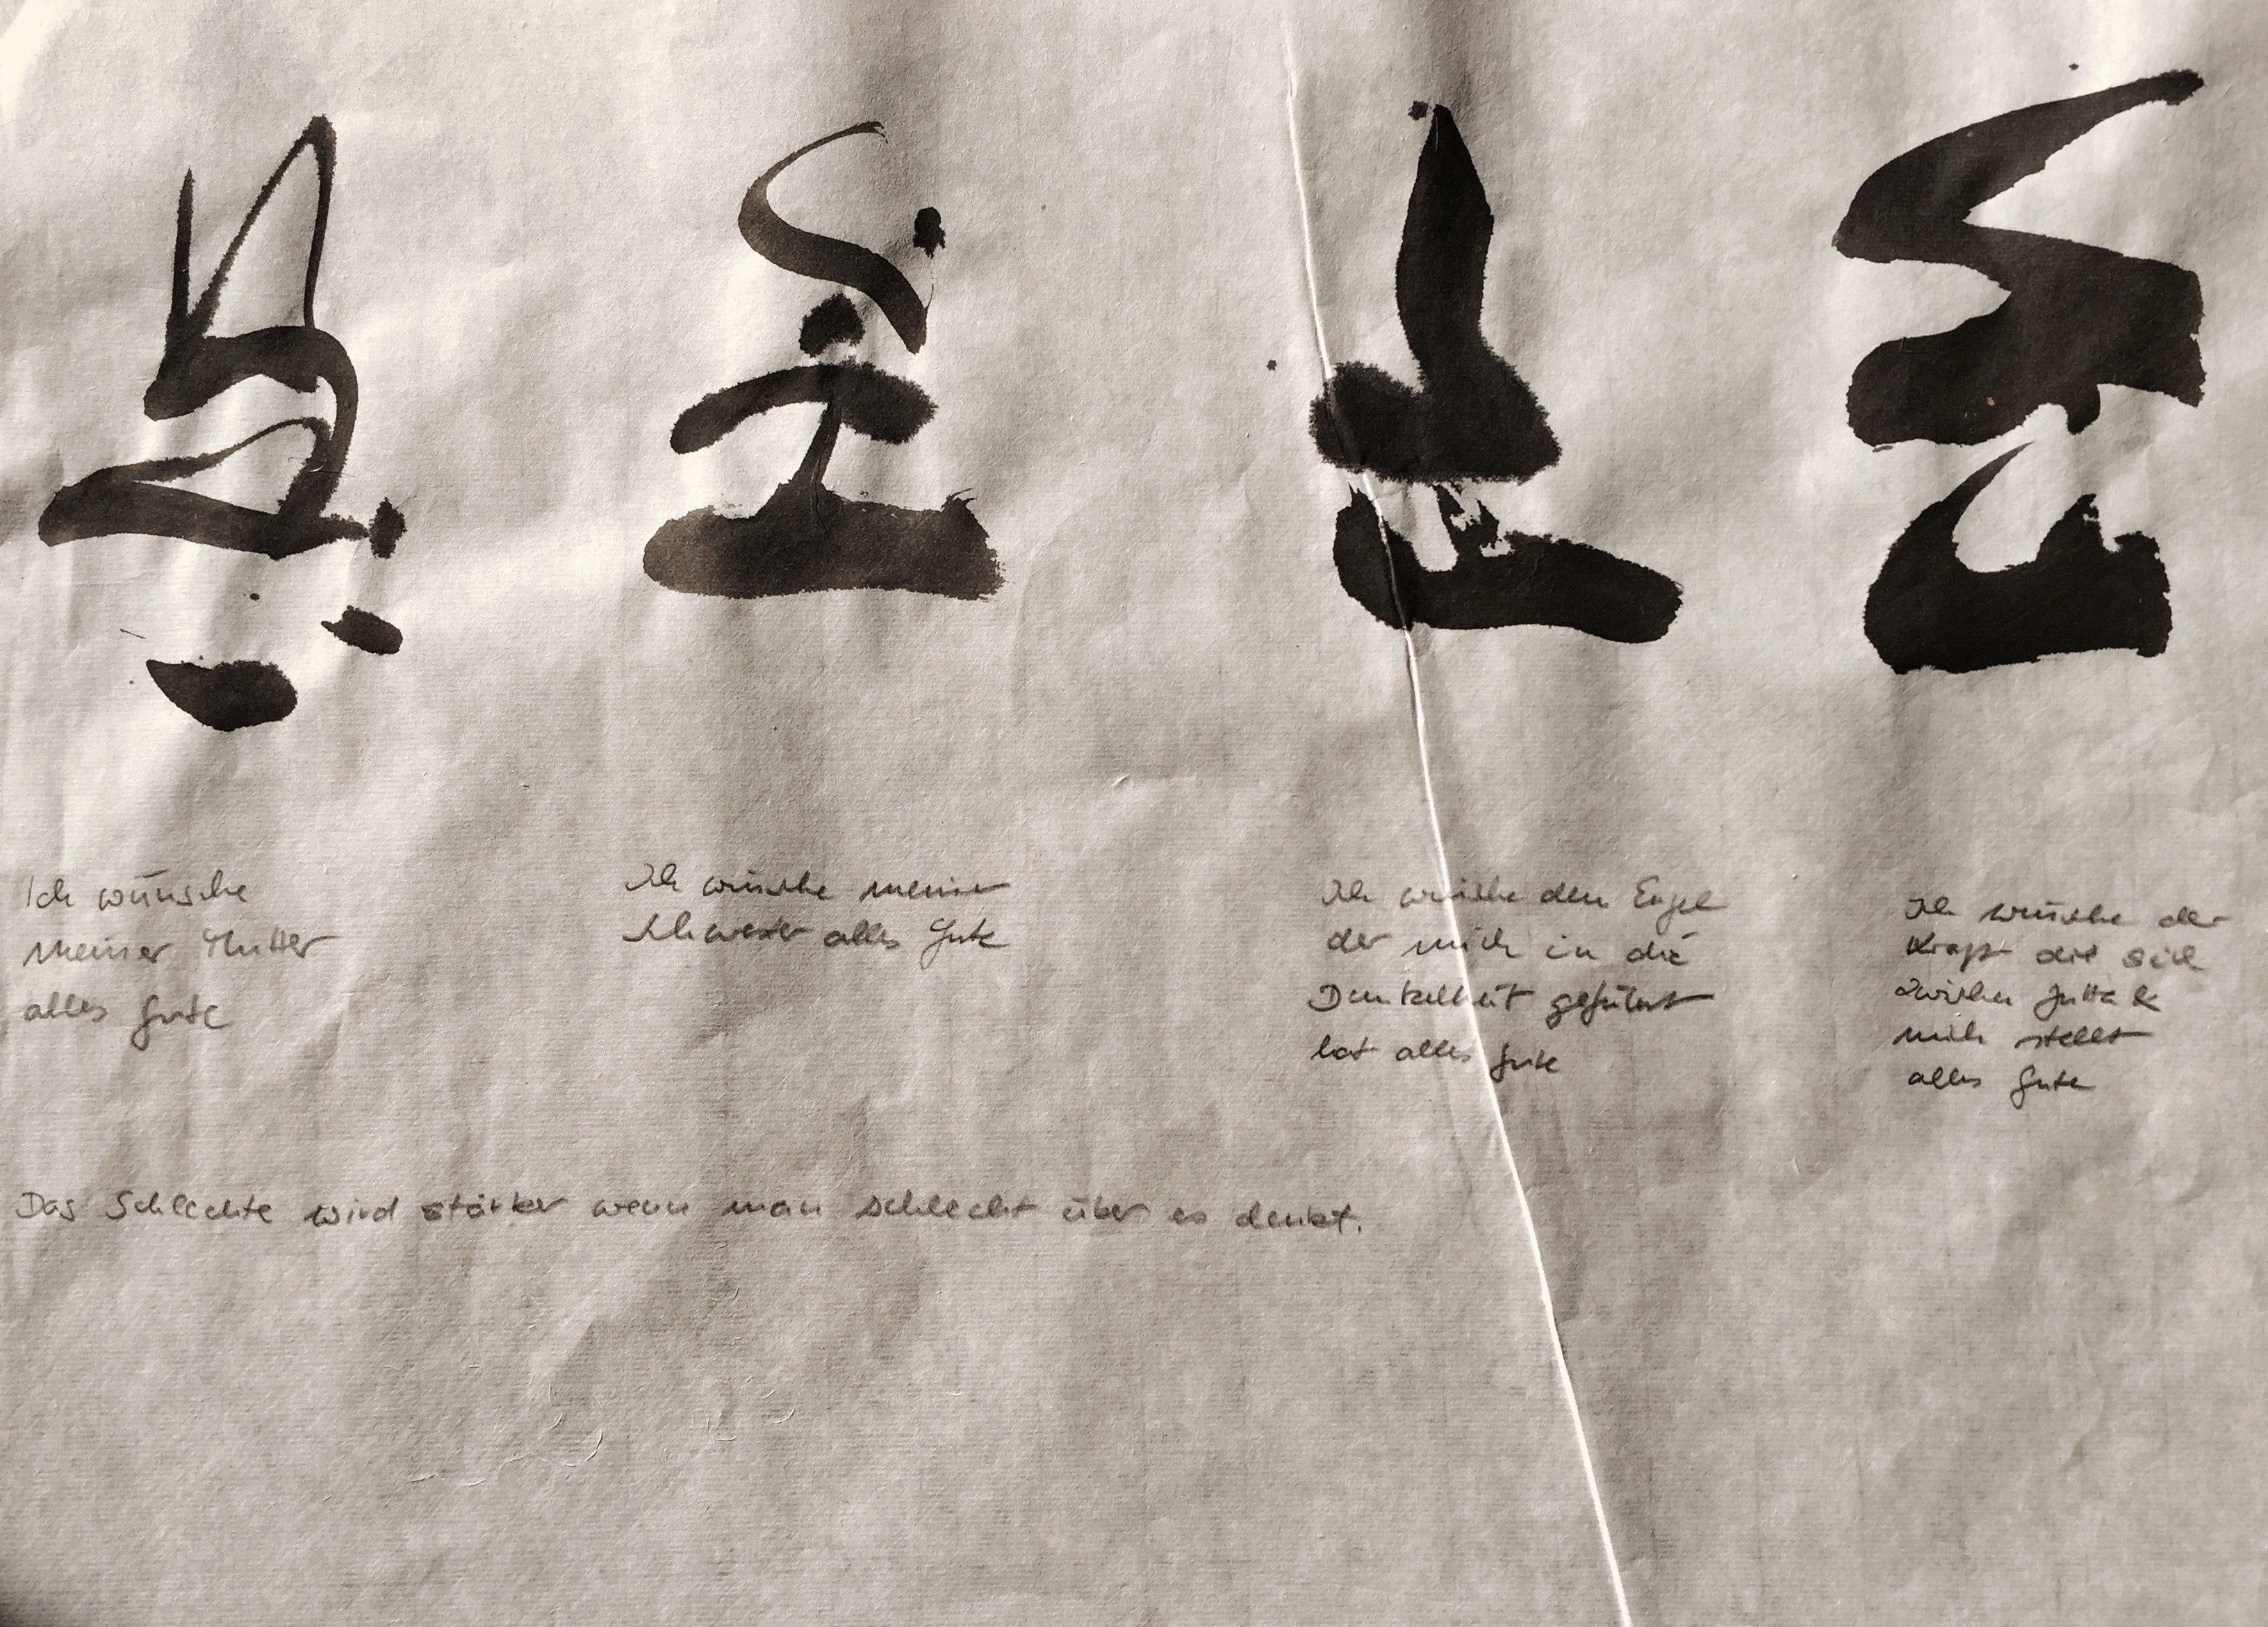 Ich wünsche
meiner Mutter
alles Gute
Ich wünsche meiner
Schwester alles Gute
Ich wünsche dem Engel
der mich in die
Dunkelheit geführt
hat alles Gute
Ich wünsche der
Kraft die sich
zwischen Jutta &
mich stellt
alles Gute
Das Schlechte wird stärker wenn man schlecht über es denkt.